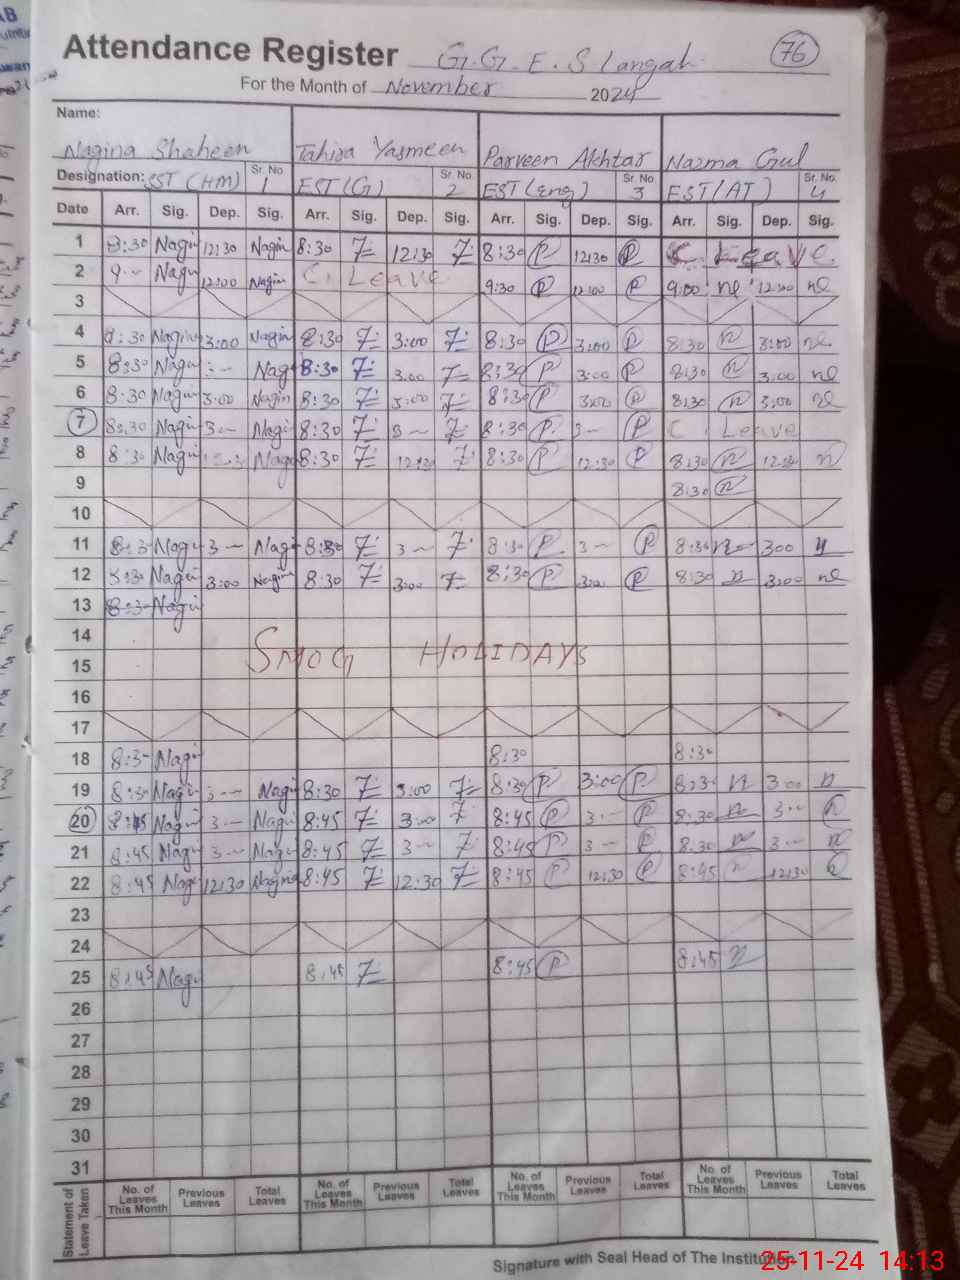 Attendance Register G.G.E.S Langah 76
For the Month of November 2024
Name:
Nagina Shaheen Tahira Yasmeen Parveen Akhtar Nazma Gul
Designation: SST (HM) Sr. No 1 EST(G) Sr. No 2 EST(Eng) Sr. No 3 EST(AT) Sr. No. 4
Date Arr. Sig. Dep. Sig. Arr. Sig. Dep. Sig. Arr. Sig. Dep. Sig. Arr. Sig. Dep. Sig.
1 8:30 Nagin 12:30 Nagin 8:30 12:30 8:30 P 12:30 P C. Leave
2 9 Nagin 12:00 Nagin C. Leave 9:30 P 12:00 P 9:00 12:00
3
4 8:30 Nagin 3:00 Nagin 8:30 3:00 8:30 P 3:00 P 8:30 n 3:00
5 8:30 Nagin 3 Nagi 8:30 3:00 8:30 P 3:00 P 8:30 n 3:00
6 8:30 Nagin 3:00 Nagin 8:30 3:00 8:30 P 3:00 P 8:30 n 3:00
7 8:30 Nagin 3 Nagin 8:30 3 8:30 P 3 P C. Leave
8 8:30 Nagin Nagi 8:30 12:30 8:30 P 12:30 P 8:30 n 12:30 n
9 8:30 n
10
11 8:3 Nagi 3 Nagi 8:30 3 8:30 P 3 P 8:30 n 300
12 8:30 Nagin 3:00 Nagin 8:30 3:00 8:30 P 3:00 P 8:30 n 3:00
13 8:3 Nagin
14
15 SMOG HOLIDAYS
16
17
18 8:3 Nagin 8:30 8:30
19 8:30 Nagin 3 Nagi 8:30 3:00 8:30 P 3:00 P 8:30 n 3:00 n
20 8:45 Nagin 3 Nagin 8:45 3:00 8:45 P 3 P 8:30 n 3 n
21 8:45 Nagi 3 Nagin 8:45 3 8:45 P 3 P 8:30 n 3 n
22 8:45 Nagi 12:30 Nagina 8:45 12:30 8:45 P 12:30 P 8:45 n 12:30
23
24
25 8:45 Nagi 8:45 8:45 P 8:45 n
26
27
28
29
30
31
Statement of Leave Taken No. of Leaves This Month Previous Leaves Total Leaves No. of Leaves This Month Previous Leaves Total Leaves No. of Leaves This Month Previous Leaves Total Leaves No. of Leaves This Month Previous Leaves Total Leaves
Signature with Seal Head of The Institution
25-11-24 14:13